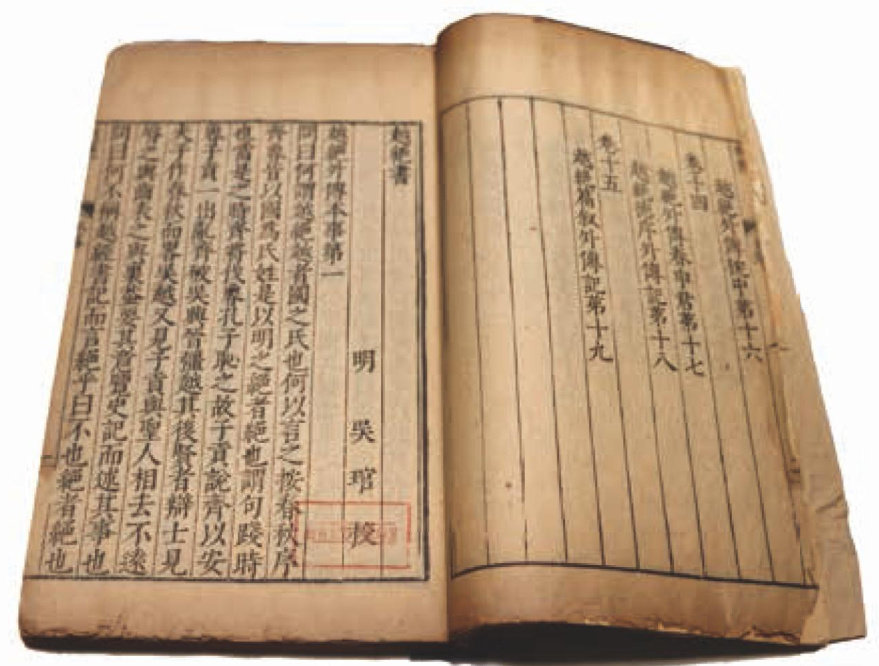 越絕外傳枕中第十六
卷十四
越絕外傳春申君第十七
越絕德序外傳記第十八
卷十五
越絕篇叙外傳記第十九
越絕書
明 吳 琯 挍
越絕外傳本事第一
問曰何謂越絕越者國之氏也何以言之按春秋序
齊魯皆以國爲氏姓是以明之絕者絕也謂句踐時
也當是之時齊將伐魯孔子恥之故子貢說齊以安
魯子貢一出亂齊破吳興晉彊越其後賢者辯士見
夫子作春秋而畧吳越又見子貢與聖人相去不遠
脣之與齒表之與裏蓋要其意覽史記而述其事也
問曰何不稱越經書記而言絕乎曰不也絕者絕也